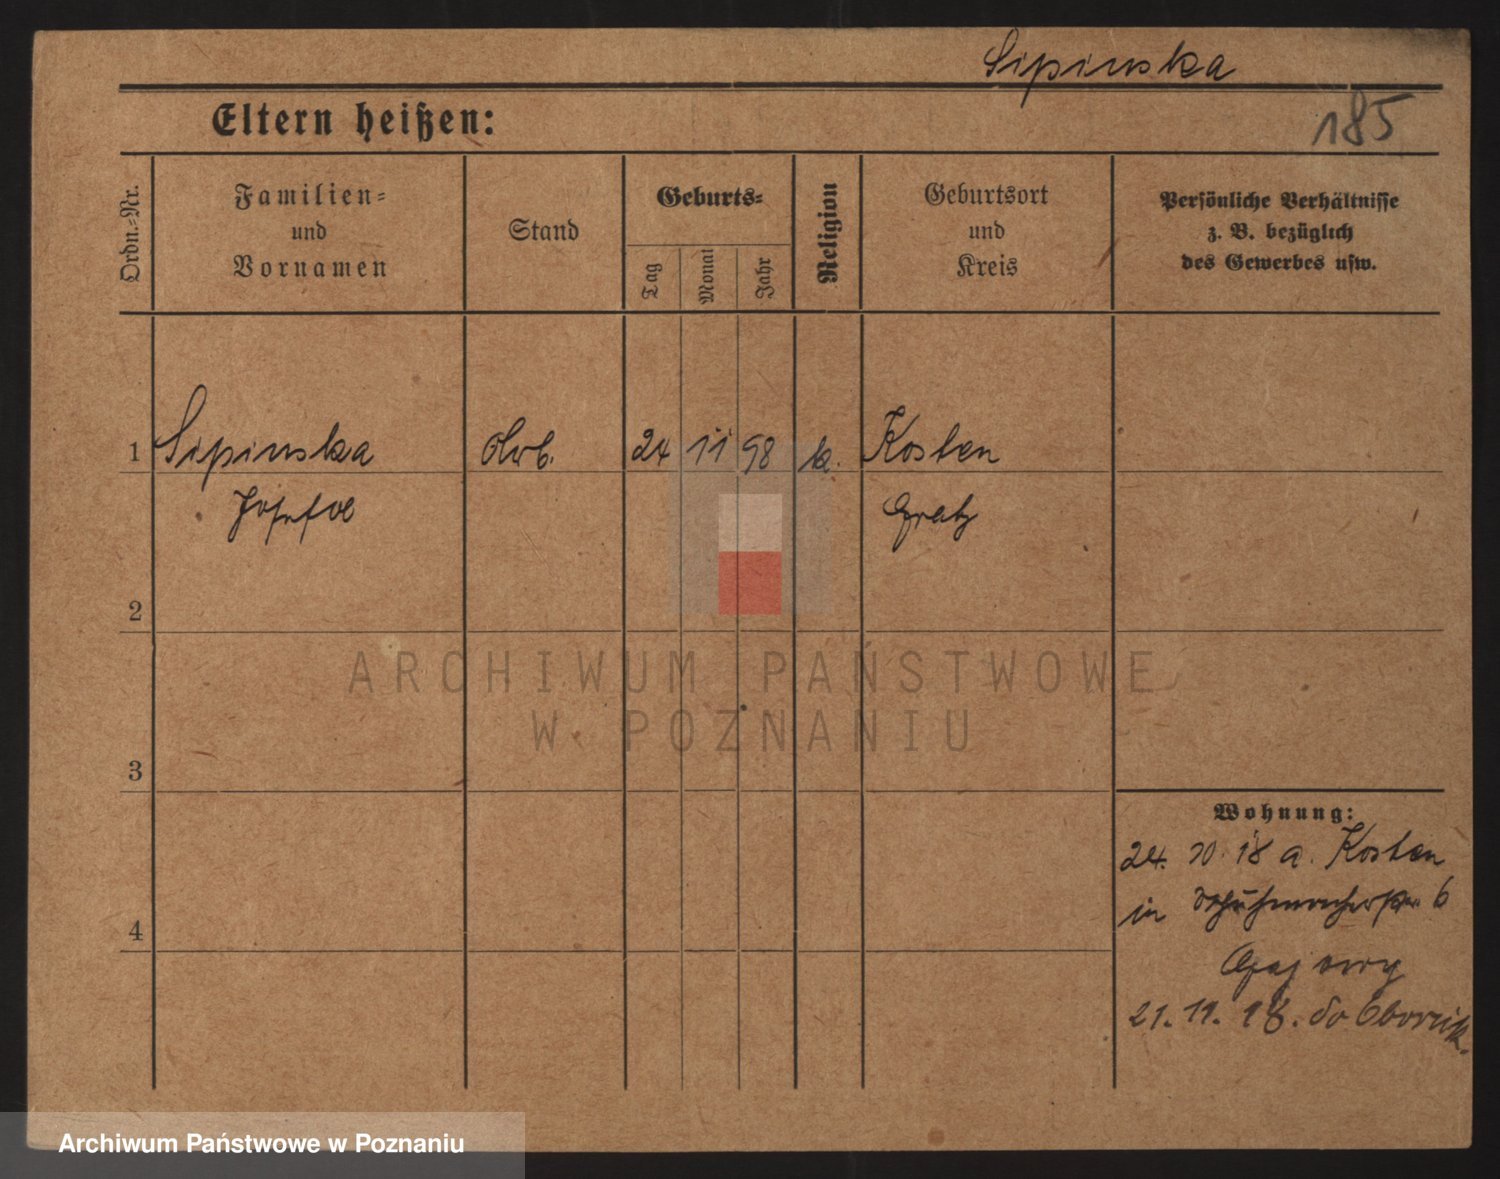 Sipinska
Eltern heißen:
185
Ordn.-Nr.
Familien-
und
Vornamen
Stand
Geburts-
Tag
Monat
Jahr
Religion
Geburtsort
und
Kreis
Persönliche Verhältnisse
z. B. bezüglich
des Gewerbes usw.
1 Sipinska Arb. 24 11 98 k. Kosten
Josefa Gratz
2
3
4
Wohnung:
24. 10. 18 a. Kosten
in Schuhmacherstr. 6
21. 11. 18. do Obornik.
ARCHIWUM PAŃSTWOWE
W POZNANIU
Archiwum Państwowe w Poznaniu